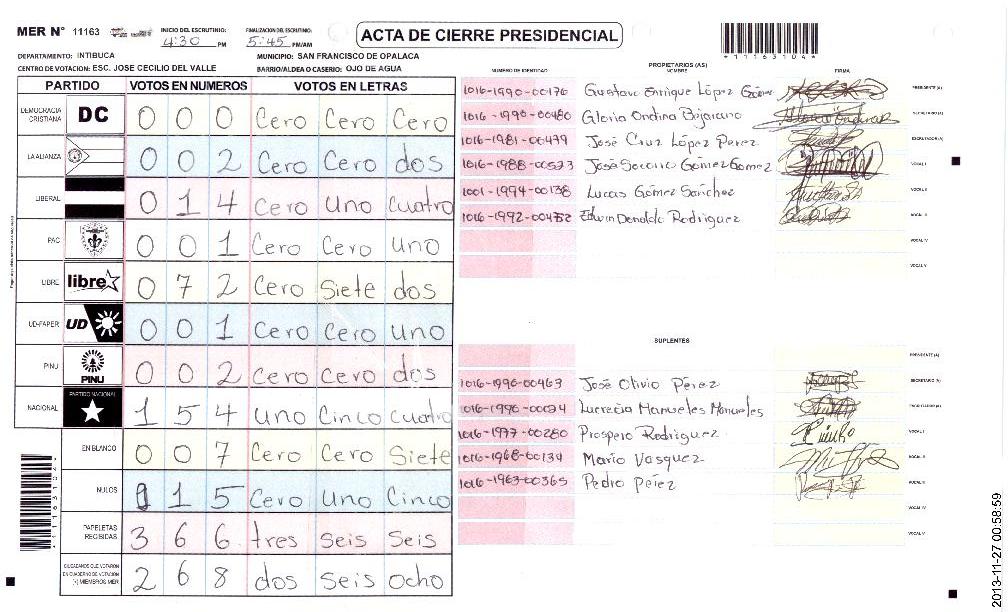 MER N° 11163 INICIO DEL ESCRUTINIO: 4:30 PM FINALIZACION DEL ESCRUTINIO: 5:45 PM/AM ACTA DE CIERRE PRESIDENCIAL *11163104*
DEPARTAMENTO: INTIBUCA MUNICIPIO: SAN FRANCISCO DE OPALACA
CENTRO DE VOTACION: ESC. JOSE CECILIO DEL VALLE BARRIO/ALDEA O CASERIO: OJO DE AGUA
PARTIDO VOTOS EN NUMEROS VOTOS EN LETRAS
DEMOCRACIA CRISTIANA DC 0 0 0 Cero Cero Cero
LA ALIANZA 0 0 2 Cero Cero dos
LIBERAL 0 1 4 Cero Uno Cuatro
PAC 0 0 1 Cero Cero uno
LIBRE libre 0 7 2 Cero Siete dos
UD-FAPER UD 0 0 1 Cero Cero Uno
PINU PINU 0 0 2 Cero Cero dos
NACIONAL PARTIDO NACIONAL 1 5 4 uno Cinco cuatro
EN BLANCO 0 0 7 Cero Cero Siete
NULOS 0 1 5 Cero Uno Cinco
PAPELETAS RECIBIDAS 3 6 6 tres seis Seis
CIUDADANOS QUE VOTARON EN CUADERNO DE VOTACION (+) MIEMBROS MER 2 6 8 dos seis ocho
PROPIETARIOS (AS)
NUMERO DE IDENTIDAD NOMBRE FIRMA
1016-1990-00176 Gustavo Enrique López Gómez PRESIDENTE (A)
1016-1990-00480 Gloria Ondina Bejarano SECRETARIO (A)
1016-1981-00479 José Cruz López Perez ESCRUTADOR (A)
1016-1988-00573 José Socorro Gómez Gomez VOCAL I
1001-1994-00138 Lucas Gómez Sánchez VOCAL II
1016-1992-00452 Edwin Donaldo Rodriguez VOCAL III
VOCAL IV
VOCAL V
SUPLENTES
PRESIDENTE (A)
1016-1996-00463 José Olivio Pérez SECRETARIO (A)
1016-1996-00034 Lucrecia Manueles Manueles ESCRUTADOR (A)
1016-1977-00280 Prospero Rodriguez VOCAL I
1016-1968-00134 Mario Vasquez VOCAL II
1016-1963-00365 Pedro Pérez VOCAL III
VOCAL IV
VOCAL V
*11163104*
2013-11-27 00:58:59